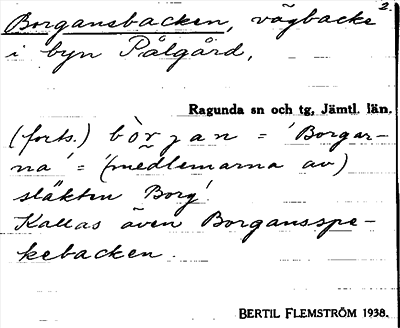 2.
Borgansbacken, vägbacke
i byn Pålgård.
Ragunda sn och tg, Jämtl. län.
(forts.) bòrjan = 'Borgar-
na' = '(medlemarna av)
släkten Borg'
Kallas även Borgansspe-
kebacken.
BERTIL FLEMSTRÖM 1938.